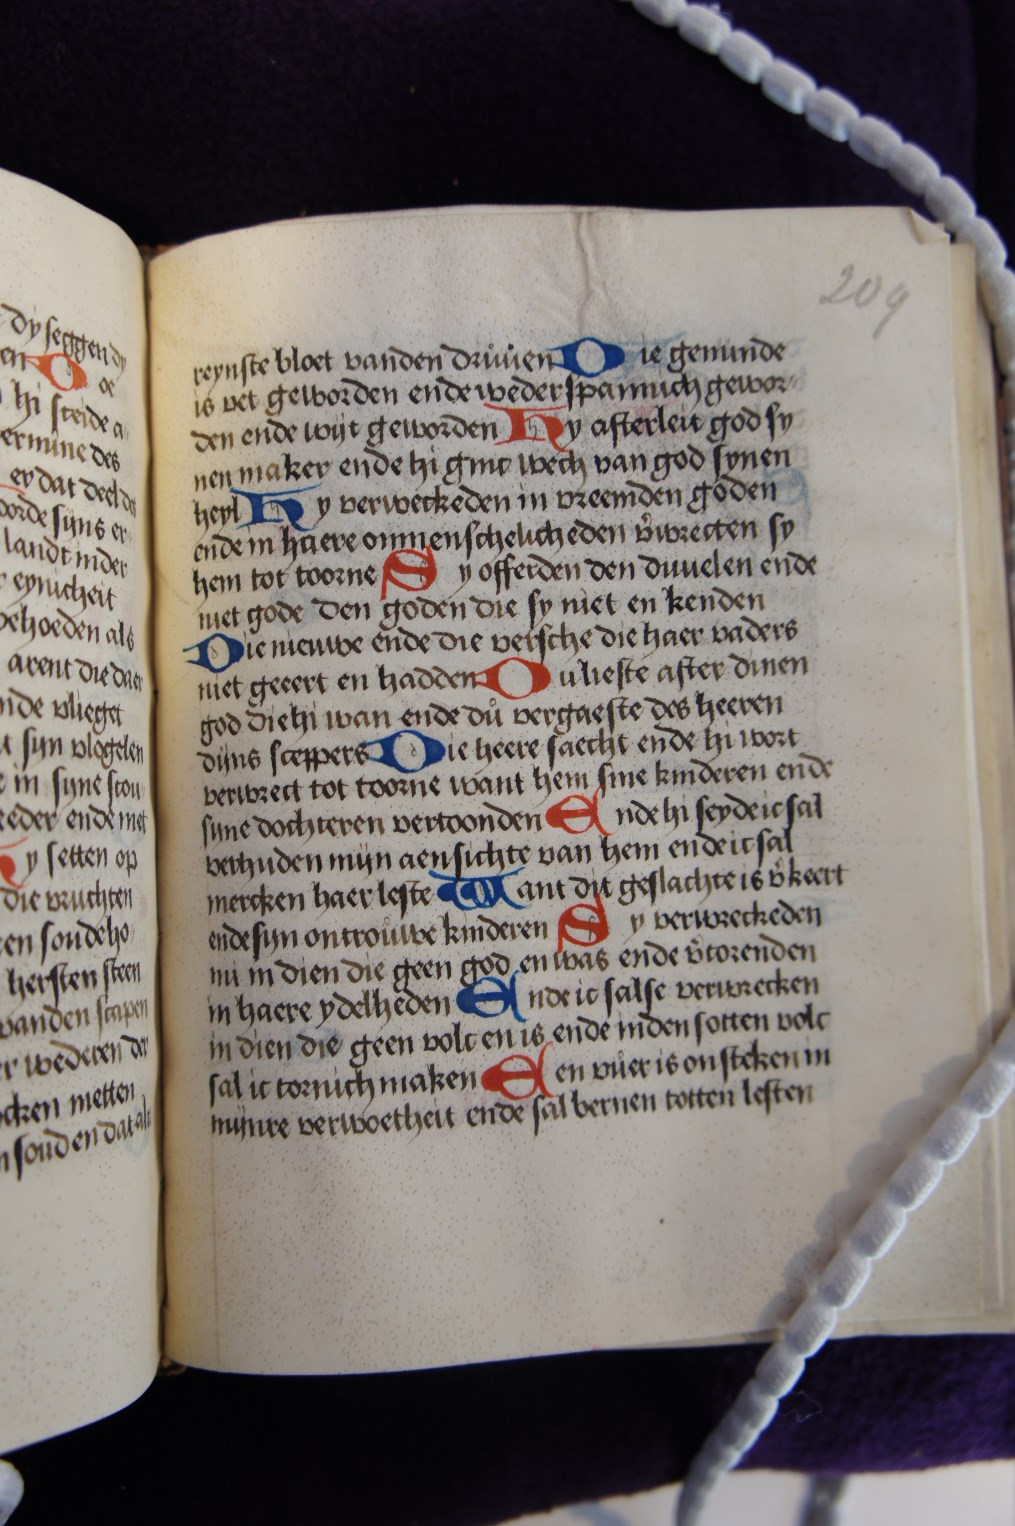 dy seggen dy
en Doe
hi steide a
ermine des
ey dat deel des
orde sijns er
landt inder
eynicheit
behoeden als
arent die daer
nde vlieget
sijn vlogelen
in sijne scou
eder ende met
y setten op
die vruchten
en soude ho
hersten steen
vanden scapen
er wederen der
ocken metten
n souden dat al
209
reynste bloet vanden druuen Die geminde
is vet geworden ende wederspannich gewor
den ende wijt geworden Hy afterleit god sy
nen maker ende hi ginc wech van god synen
heyl Hy verweckeden in vreemden goden
ende in haere onmenschelicheden v̊wrecten sy
hem tot toorne Sy offerden den duuelen ende
niet gode den goden die sy niet en kenden
Die nieuwe ende die versche die haer vaders
niet geeert en hadden Du lieste after dinen
god die hi wan ende du vergaefte des heeren
dijns sceppers Die heere saecht ende hi wort
verwrect tot toorne want hem sine kinderen ende
sijne dochteren vertoonden Ende hi seyde ic sal
verhuden mijn aensichte van hem ende ic sal
mercken haer leste Want dit geslachte is v̊keert
ende sijn ontrouwe kinderen Sy verwreckeden
mi in dien die geen god en was ende v̊torenden
in haere ydelheden Ende ic salse verwrecken
in dien die geen volc en is ende inden sotten volc
sal ic tornich maken Een vuer is onsteken in
mijnre verwoetheit ende sal bernen totten lesten